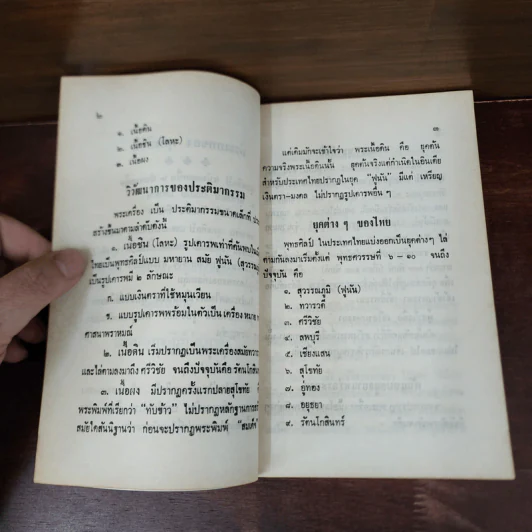 ๒
๑. เนื้อดิน
๒. เนื้อชิน (โลหะ)
๓. เนื้อผง
วิวัฒนาการของประติมากรรม
พระเครื่อง เป็น ประติมากรรมขนาดเล็กที่
สร้างขึ้นมาตามลำดับดังนี้
๑. เนื้อชิน (โลหะ) รูปเคารพเท่าที่ค้นพบใน
ไทยเป็นพุทธศิลป์แบบ มหายาน สมัย ฟูนัน (สุวรรณ
เป็นรูปเคารพมี ๒ ลักษณะ
ก. แบบเงินตราที่ใช้หมุนเวียน
ข. แบบรูปเคารพพร้อมในตัวเป็นเครื่องหมาย
ศาสนาพราหมณ์
๒. เนื้อดิน เริ่มปรากฏเป็นพระเครื่องสมัยทวา
และไล่ตามลงมาถึง ศรีวิชัย จนถึงปัจจุบันคือ รัตนโกสิน
๓. เนื้อผง มีปรากฏครั้งแรกปลายสุโขทัย
พระพิมพ์ที่เรียกว่า "ทับข้าว" ไม่ปรากฏหลักฐานการ
สมัยใดสันนิฐานว่า ก่อนจะปรากฏพระพิมพ์ "สมเด็จ
๓
แต่เดิมมักจะเข้าใจว่า พระเนื้อดิน คือ ยุคต้น
ความจริงพระเนื้อดินนั้น ยุคต้นจริงแต่กำเนิดในอินเดีย
สำหรับประเทศไทยปรากฏในยุค "ฟูนัน" มีแต่ เหรียญ
เงินตรา–มงคล ไม่ปรากฏรูปเคารพอื่น ๆ
ยุคต่าง ๆ ของไทย
พุทธศิลป์ ในประเทศไทยแบ่งออกเป็นยุคต่างๆ ไล่
ตามกันลงมาเริ่มตั้งแต่ พุทธศวรรษที่ ๖ – ๑๐ จนถึง
ปัจจุบัน คือ
๑. สุวรรณภูมิ (ฟูนัน)
๒. ทวารวดี
๓. ศรีวิชัย
๔. ลพบุรี
๕. เชียงแสน
๖. สุโขทัย
๗. อู่ทอง
๘. อยุธยา
๙. รัตนโกสินทร์